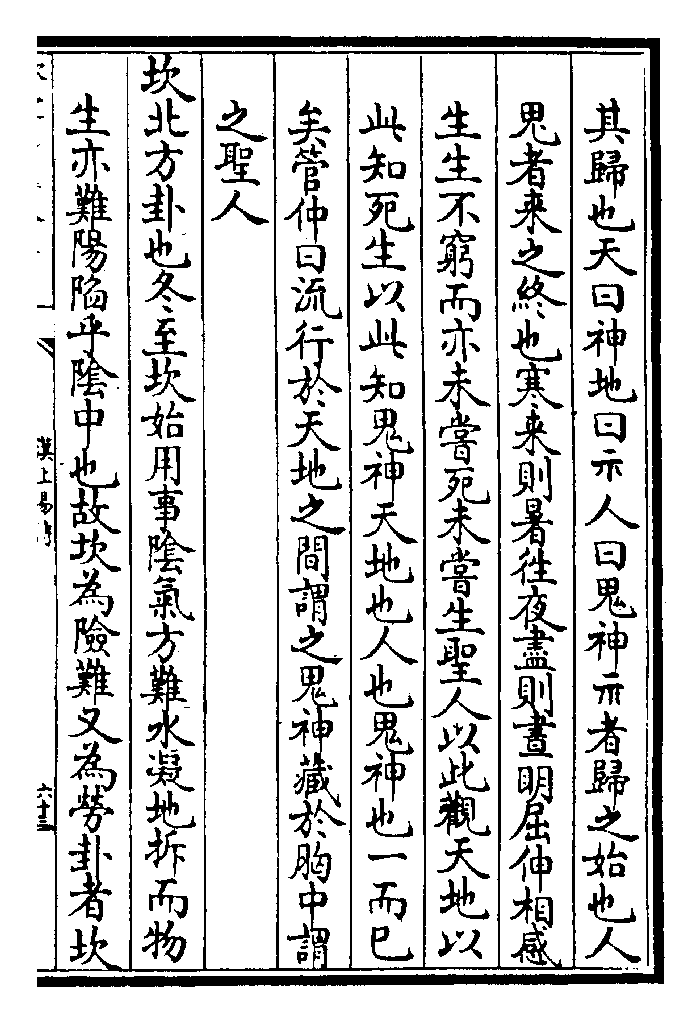 其歸也天曰神地曰示人曰鬼神示者歸之始也人
鬼者来之終也寒来則暑徃夜盡則晝明屈伸相感
生生不窮而亦未嘗死未嘗生聖人以此觀天地以
此知死生以此知鬼神天地也人也鬼神也一而已
矣管仲曰流行於天地之間謂之鬼神藏於胸中謂
之聖人
坎北方卦也冬至坎始用事陰氣方難水凝地拆而物
生亦難陽陷乎陰中也故坎為險難又為勞卦者坎
漢上易傳
六十三